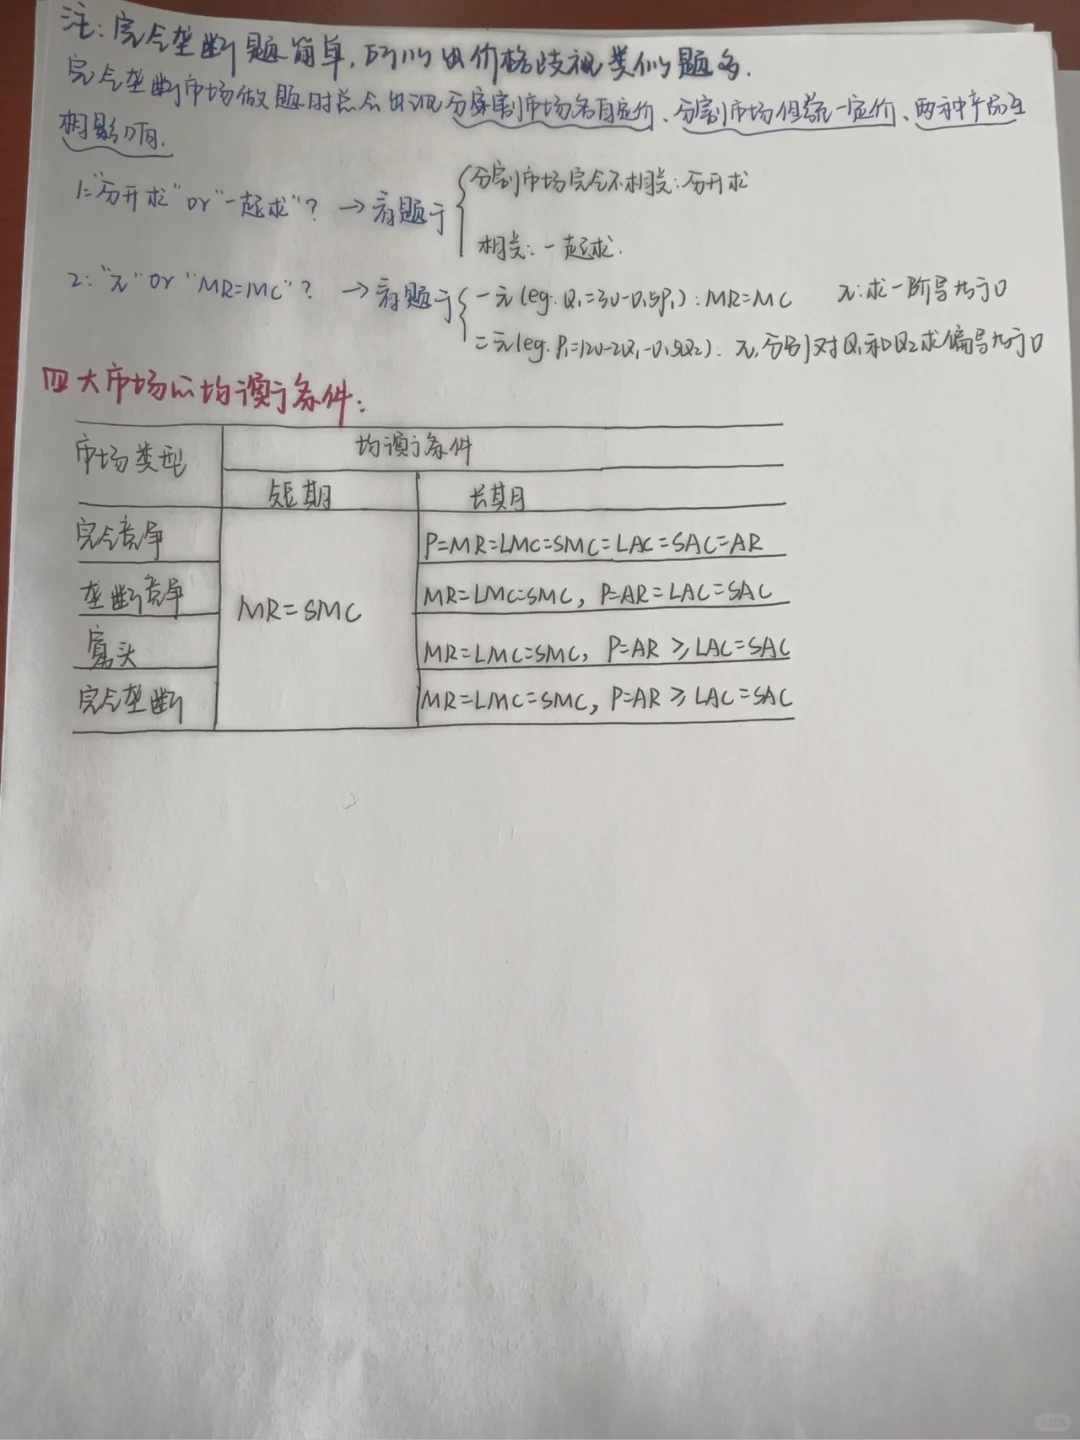 注：完全垄断题简单，所以出价格歧视类似题多.
完全垄断市场做题时总会出现分割市场各自定价、分割市场但统一定价、两种产品互
相影响.
1："分开求" or "一起求"？ → 看题干 { 分割市场完全不相关：分开求
相关：一起求.
2："π" or "MR=MC"？ → 看题干 { 一元(eg. Q₁=30-0.5P₁)：MR=MC π:求一阶导为于0
二元(eg. P₁=120-2Q₁-0.5Q₂)：π,分别对Q₁和Q₂求偏导为于0
四大市场的均衡条件：
市场类型 均衡条件
短期 长期
完全竞争 P=MR=LMC=SMC=LAC=SAC=AR
垄断竞争 MR=SMC MR=LMC=SMC, P=AR=LAC=SAC
寡头 MR=LMC=SMC, P=AR⩾LAC=SAC
完全垄断 MR=LMC=SMC, P=AR⩾LAC=SAC